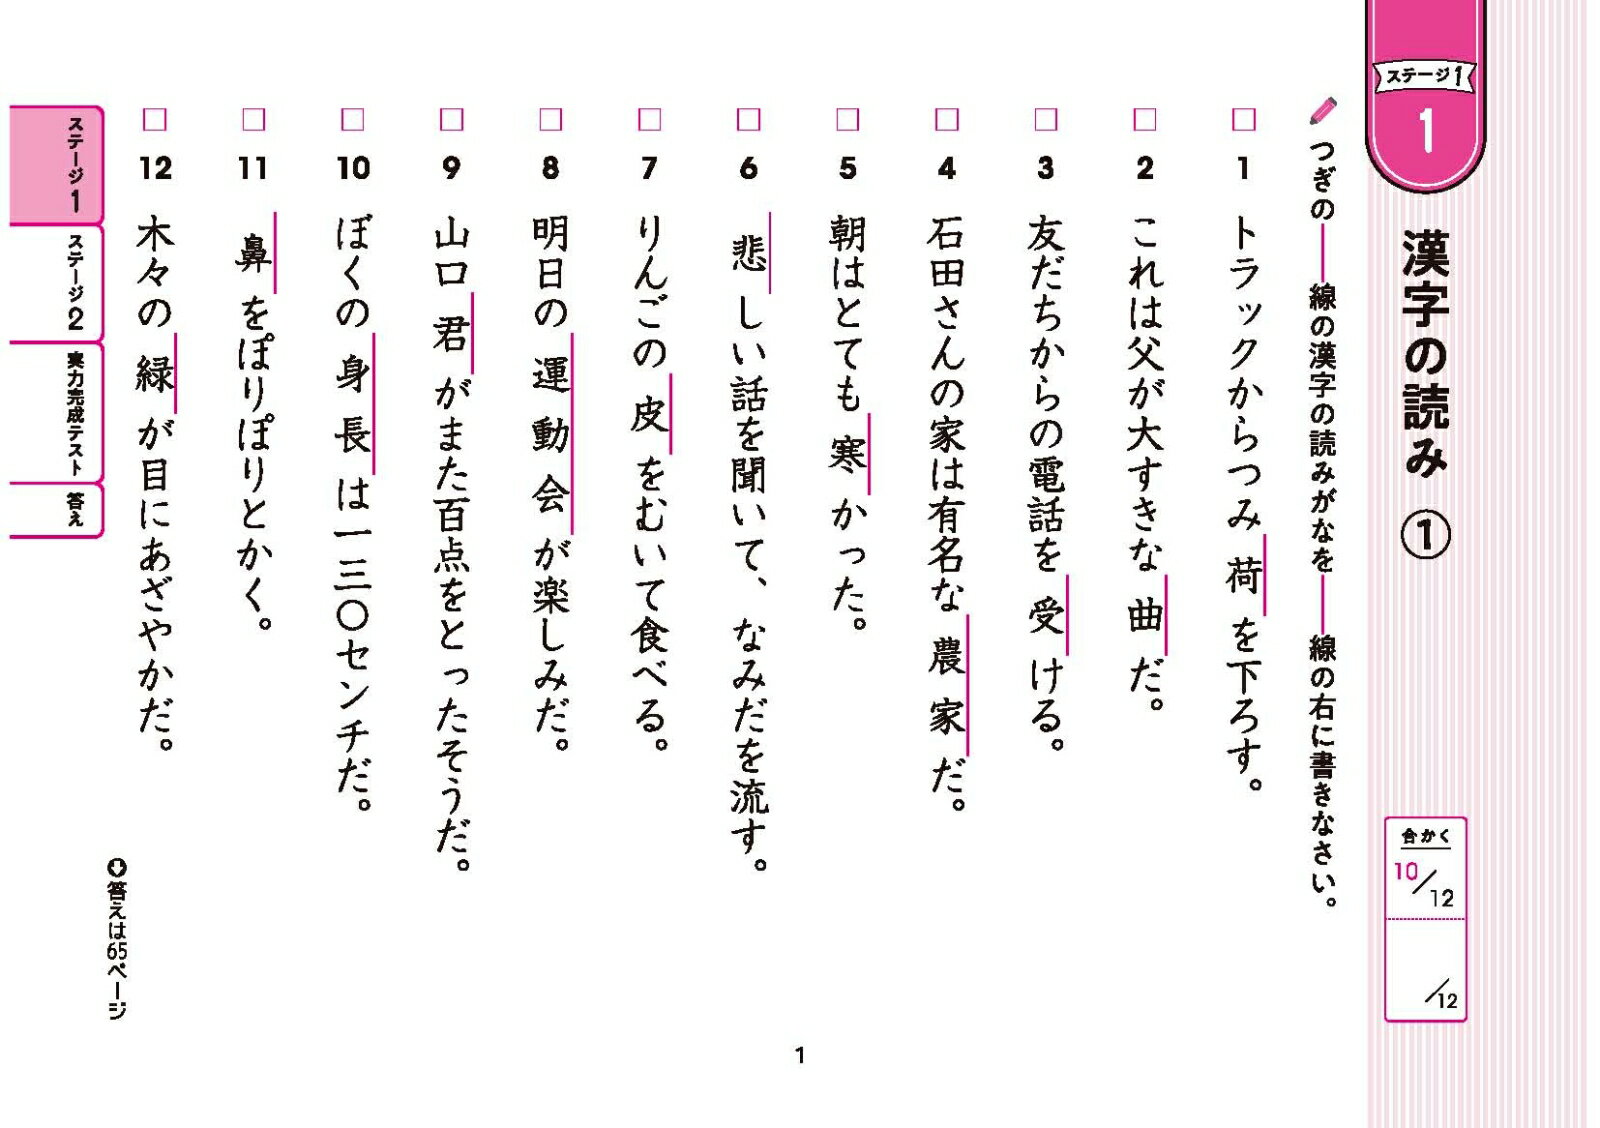 ステージ1
1
漢字の読み ①
合かく
10/12
/12
つぎの――線の漢字の読みがなを――線の右に書きなさい。
□ 1 トラックからつみ荷を下ろす。
□ 2 これは父が大すきな曲だ。
□ 3 友だちからの電話を受ける。
□ 4 石田さんの家は有名な農家だ。
□ 5 朝はとても寒かった。
□ 6 悲しい話を聞いて、なみだを流す。
□ 7 りんごの皮をむいて食べる。
□ 8 明日の運動会が楽しみだ。
□ 9 山口君がまた百点をとったそうだ。
□ 10 ぼくの身長は一三〇センチだ。
□ 11 鼻をぽりぽりとかく。
□ 12 木々の緑が目にあざやかだ。
答えは65ページ
ステージ1
ステージ2
実力完成テスト
答え
1